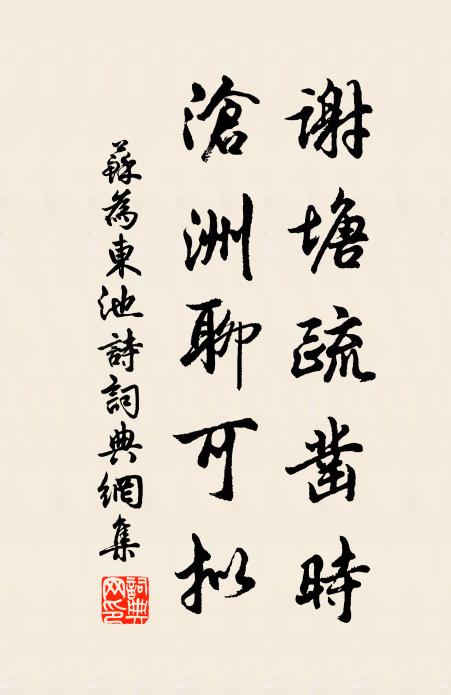 謝塘疏鑿時
滄洲聊可擬
蘇為東池詩詞典網集
詞典网印